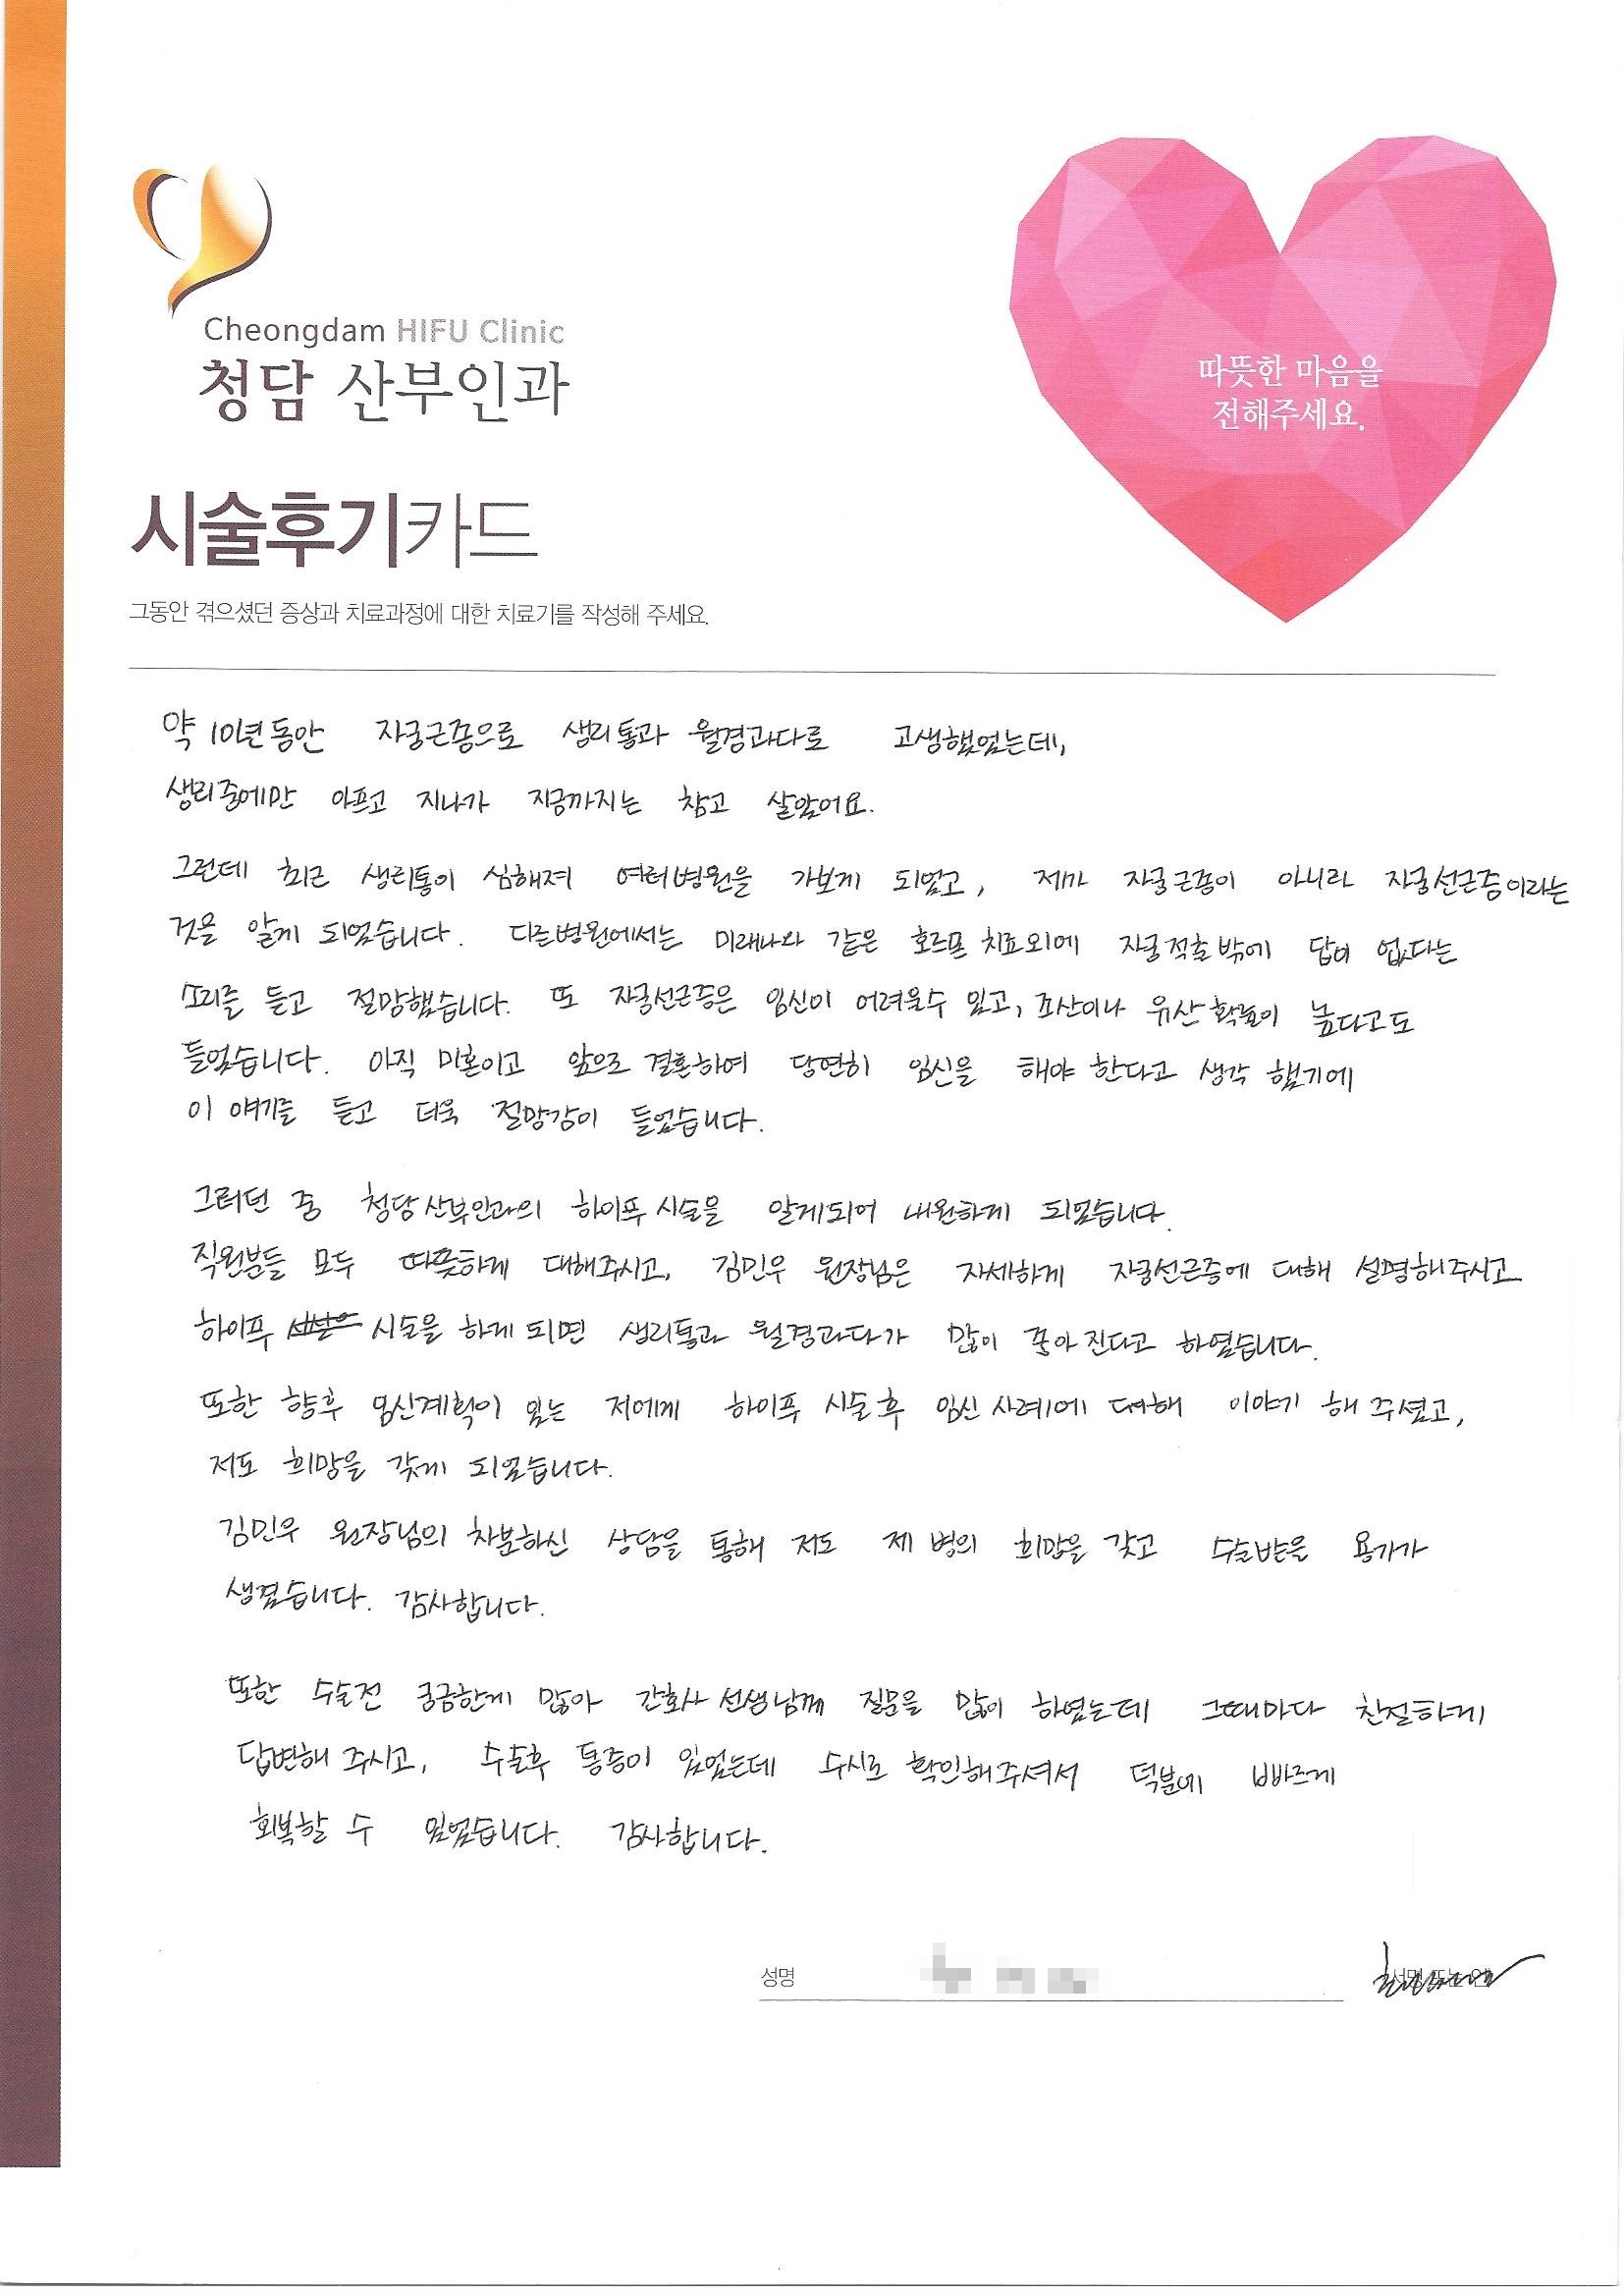 Cheongdam HIFU Clinic
청담 산부인과
따뜻한 마음을
전해주세요.
시술후기카드
그동안 겪으셨던 증상과 치료과정에 대한 치료기를 작성해 주세요.
약 10년동안 자궁근종으로 생리통과 월경과다로 고생했었는데,
생리중에만 아프고 지나가 지금까지는 참고 살았어요.
그런데 최근 생리통이 심해져 여러병원을 가보게 되었고, 제가 자궁근종이 아니라 자궁선근증이라는
것을 알게 되었습니다. 다른병원에서는 미레나와 같은 호르몬 치료외에 자궁적출밖에 답이 없다는
소리를 듣고 절망했습니다. 또 자궁선근증은 임신이 어려울수 있고, 조산이나 유산 확률이 높다고도
들었습니다. 아직 미혼이고 앞으로 결혼하여 당연히 임신을 해야 한다고 생각 했기에
이 얘기를 듣고 더욱 절망감이 들었습니다.
그러던 중 청담산부인과의 하이푸 시술을 알게되어 내원하게 되었습니다.
직원분들 모두 따뜻하게 대해주시고, 김민우 원장님은 자세하게 자궁선근증에 대해 설명해주시고
하이푸 시술을 하게 되면 생리통과 월경과다가 많이 좋아진다고 하였습니다.
또한 향후 임신계획이 있는 저에게 하이푸 시술 후 임신 사례에 대해 이야기 해 주셨고,
저도 희망을 갖게 되었습니다.
김민우 원장님의 차분하신 상담을 통해 저도 제 병의 희망을 갖고 수술받을 용기가
생겼습니다. 감사합니다.
또한 수술전 궁금한게 많아 간호사 선생님께 질문을 많이 하였는데 그때마다 친절하게
답변해 주시고, 수술후 통증이 있었는데 수시로 확인해주셔서 덕분에 빠르게
회복할 수 있었습니다. 감사합니다.
성명